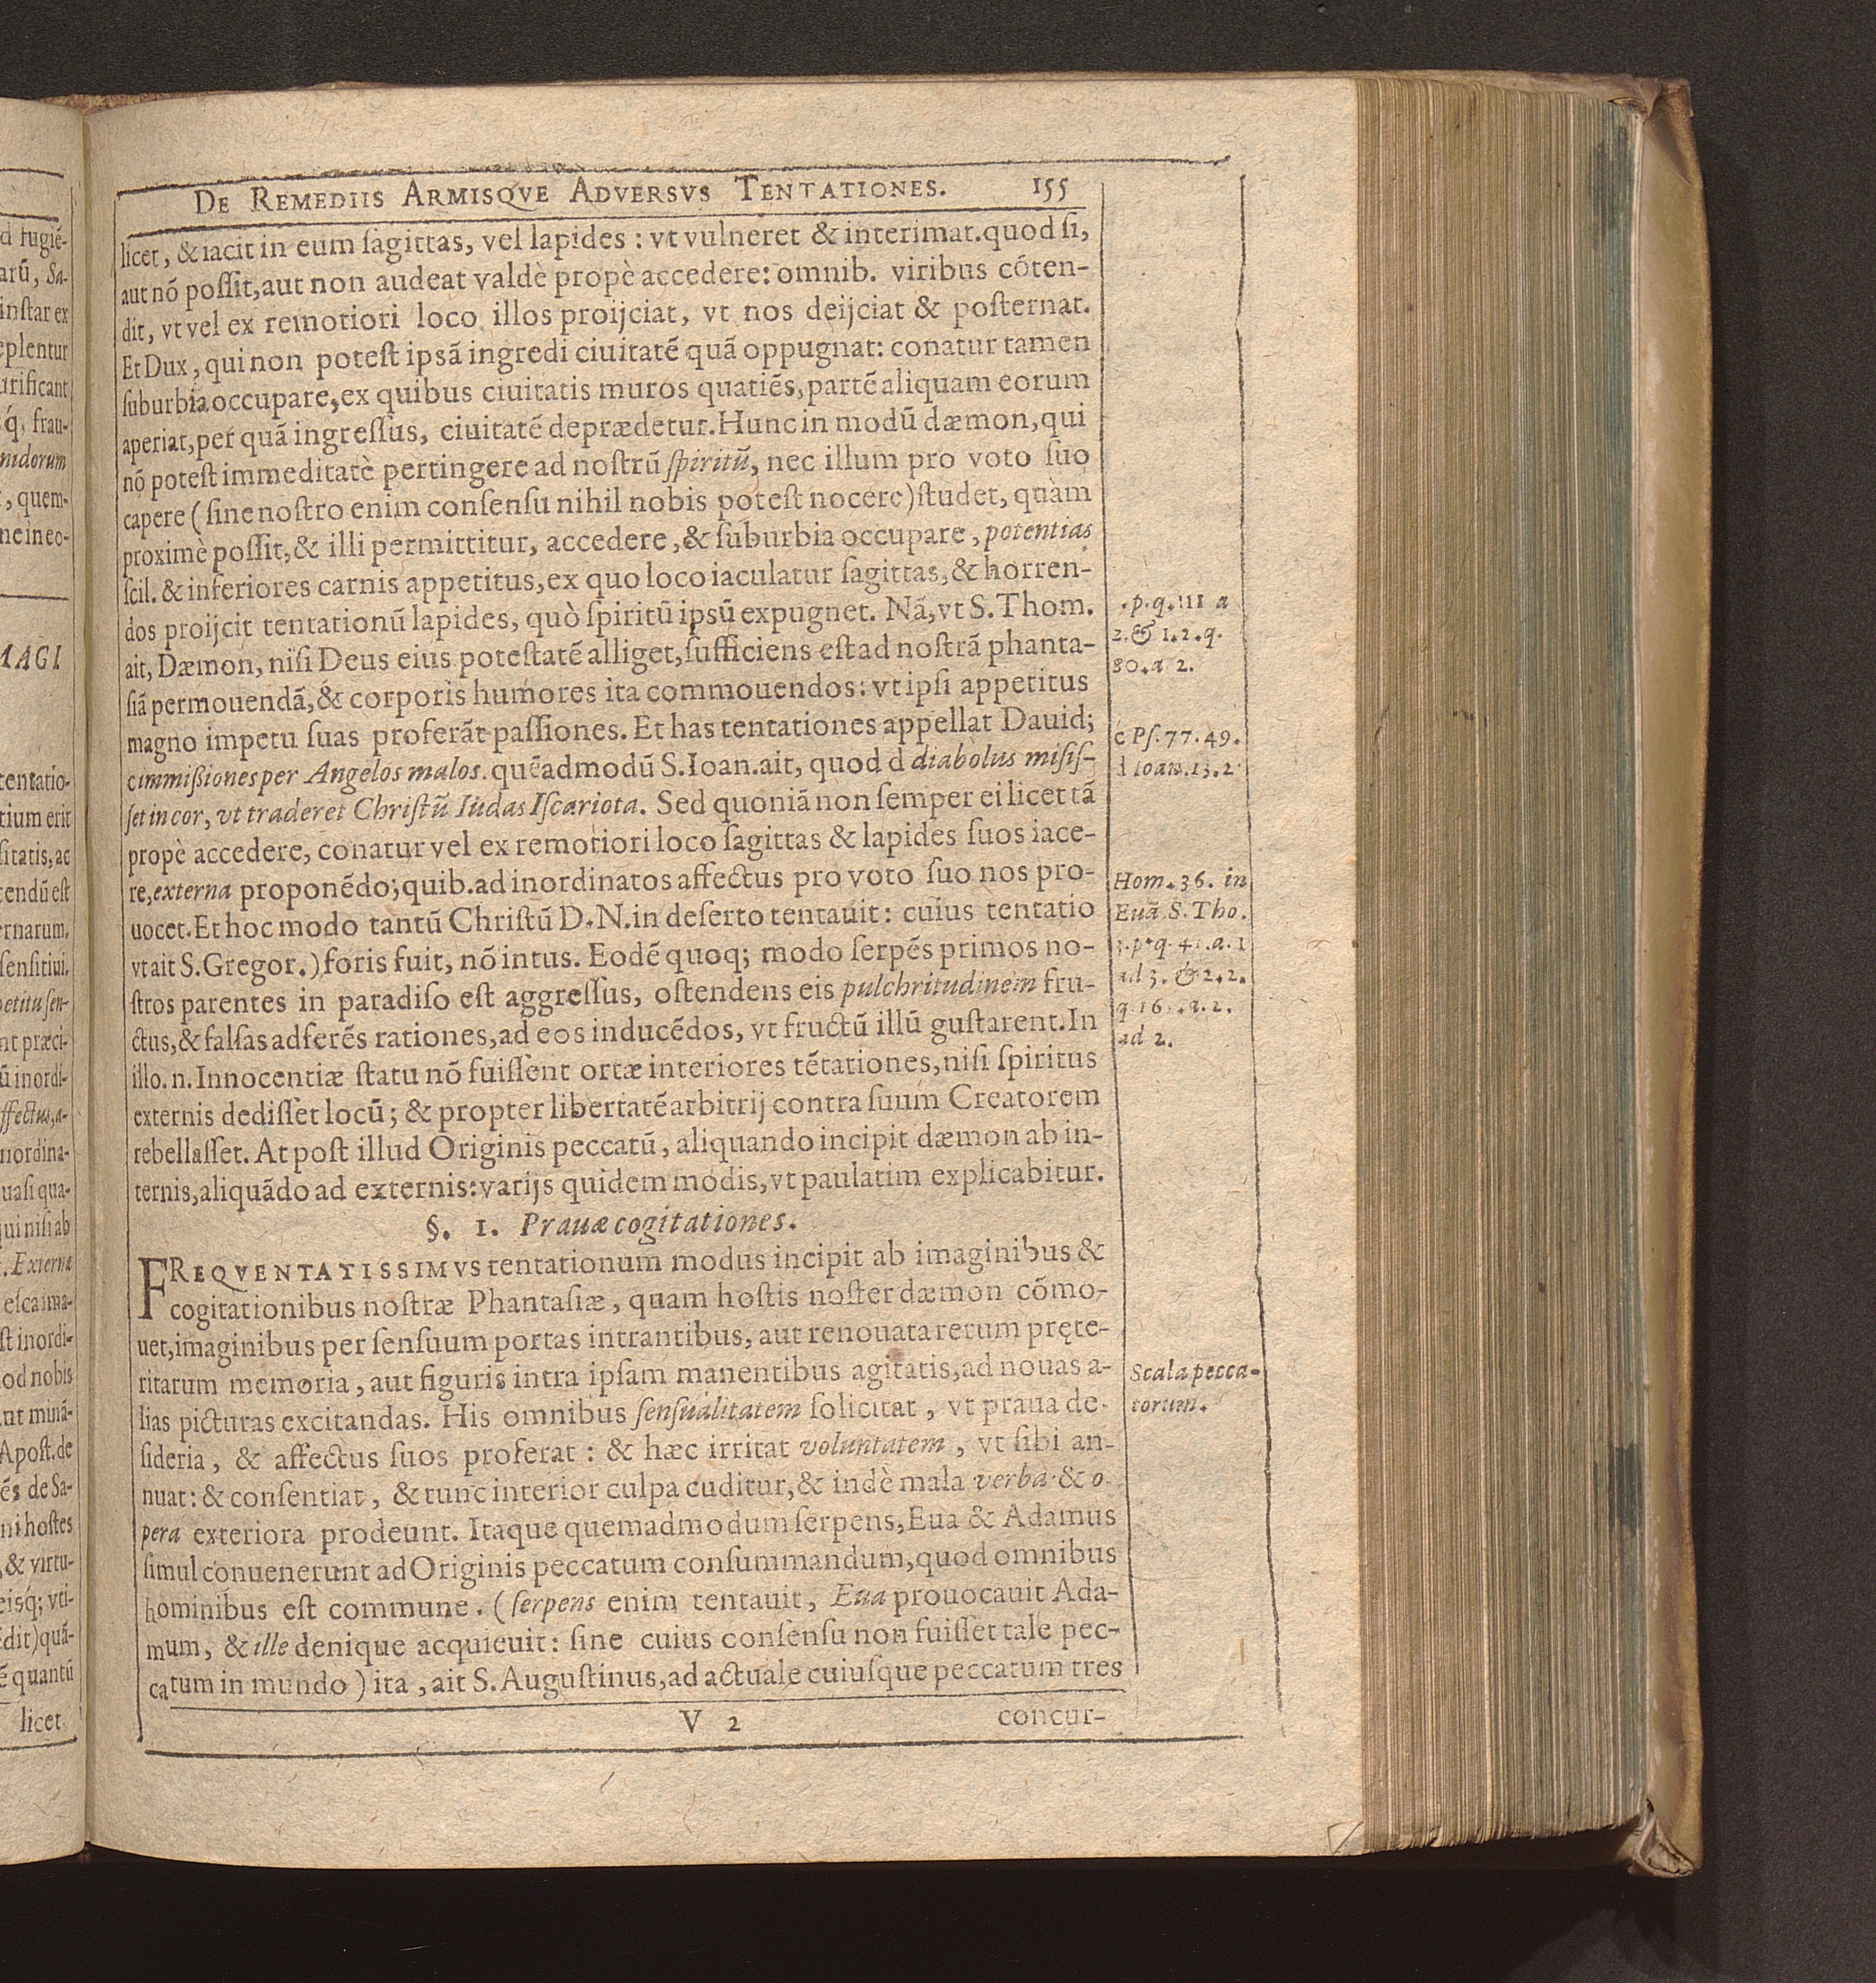 DE REMEDIIS ARMISQVE ADVERSVS TENTATIONES. 155
licet, & iacit in eum ſagittas, vel lapides : vt vulneret & interimat. quod ſi,
aut nõ poſſit, aut non audeat valdè propè accedere: omnib. viribus cõten-
dit, vt vel ex remotiori loco illos proijciat, vt nos deijciat & poſternat.
Et Dux, qui non poteſt ipsã ingredi ciuitatẽ quã oppugnat: conatur tamen
ſuburbia occupare, ex quibus ciuitatis muros quatiẽs, partẽ aliquam eorum
aperiat, per quã ingreſſus, ciuitatẽ deprædetur. Hunc in modũ dæmon, qui
nõ poteſt immeditatè pertingere ad noſtrũ ſpiritũ, nec illum pro voto ſuo
capere (ſine noſtro enim conſenſu nihil nobis poteſt nocere) ſtudet, quàm
proximè poſſit, & illi permittitur, accedere, & ſuburbia occupare, potentias
ſcil. & inferiores carnis appetitus, ex quo loco iaculatur ſagittas, & horren-
dos proijcit tentationũ lapides, quò ſpiritũ ipsũ expugnet. Nã, vt S. Thom.
ait, Dæmon, niſi Deus eius poteſtatẽ alliget, ſufficiens eſt ad noſtrã phanta-
ſiã permouendã, & corporis humores ita commouendos: vt ipſi appetitus
magno impetu ſuas proferãt paſſiones. Et has tentationes appellat Dauid;
c immißiones per Angelos malos. quẽadmodũ S. Ioan. ait, quod d diabolus miſiſ-
ſet in cor, vt traderet Chriſtũ Iudas Iſcariota. Sed quoniã non ſemper ei licet tã
propè accedere, conatur vel ex remotiori loco ſagittas & lapides ſuos iace-
re, externa proponẽdo; quib. ad inordinatos affectus pro voto ſuo nos pro-
uocet. Et hoc modo tantũ Chriſtũ D. N. in deſerto tentauit: cuius tentatio
vt ait S. Gregor.) foris fuit, nõ intus. Eodẽ quoq; modo ſerpẽs primos no-
ſtros parentes in paradiſo eſt aggreſſus, oſtendens eis pulchritudinem fru-
ctus, & falſas adferẽs rationes, ad eos inducẽdos, vt fructũ illũ guſtarent. In
illo. n. Innocentiæ ſtatu nõ fuiſſent ortæ interiores tẽtationes, niſi ſpiritus
externis dediſſet locũ; & propter libertatẽ arbitrij contra ſuum Creatorem
rebellaſſet. At poſt illud Originis peccatũ, aliquando incipit dæmon ab in-
ternis, aliquãdo ad externis: varijs quidem modis, vt paulatim explicabitur.
§. 1. Prauæ cogitationes.
FREQVENTATISSIMVS tentationum modus incipit ab imaginibus &
cogitationibus noſtræ Phantaſiæ, quam hoſtis noſter dæmon cõmo-
uet, imaginibus per ſenſuum portas intrantibus, aut renouata rerum pręte-
ritarum memoria, aut figuris intra ipſam manentibus agitatis, ad nouas a-
lias picturas excitandas. His omnibus ſenſualitatem ſolicitat, vt praua de-
ſideria, & affectus ſuos proferat : & hæc irritat voluntatem, vt ſibi an-
nuat: & conſentiat, & tunc interior culpa cuditur, & indè mala verba & o-
pera exteriora prodeunt. Itaque quemadmodum ſerpens, Eua & Adamus
ſimul conuenerunt ad Originis peccatum conſummandum, quod omnibus
hominibus eſt commune. (ſerpens enim tentauit, Eua prouocauit Ada-
mum, & ille denique acquieuit: ſine cuius conſenſu non fuiſſet tale pec-
catum in mundo) ita, ait S. Auguſtinus, ad actuale cuiuſque peccatum tres
V 2 concur-
.p.q.111 a
2. & 1.2.q.
80.a 2.
c Pſ.77.49.
d Ioan.13.2
Hom.36. in
Euã. S. Tho.
3.p.q.41.a.1
ad 3. & 2.2.
ad 2.
Scala pecca-
torum.
d fugiẽ-
arũ, Sa-
inſtar ex
eplentur
urificant
q́, frau-
nidorum
, quem-
ne in eo-
MAGI
tentatio-
tium erit
ſitatis, ac
cendũ eſt
ernarum,
ſenſitiui,
petitu ſen-
nt præci-
ũ inordi-
ffectus, a-
nordina-
uaſi qua-
qui niſi ab
. Externa
eſca ima-
ſt inordi-
od nobis
ut minã-
Apoſt. de
ẽs de Sa-
ni hoſtes
, & virtu-
eisq́; vti-
dit) quã-
ẽ quantũ
licet